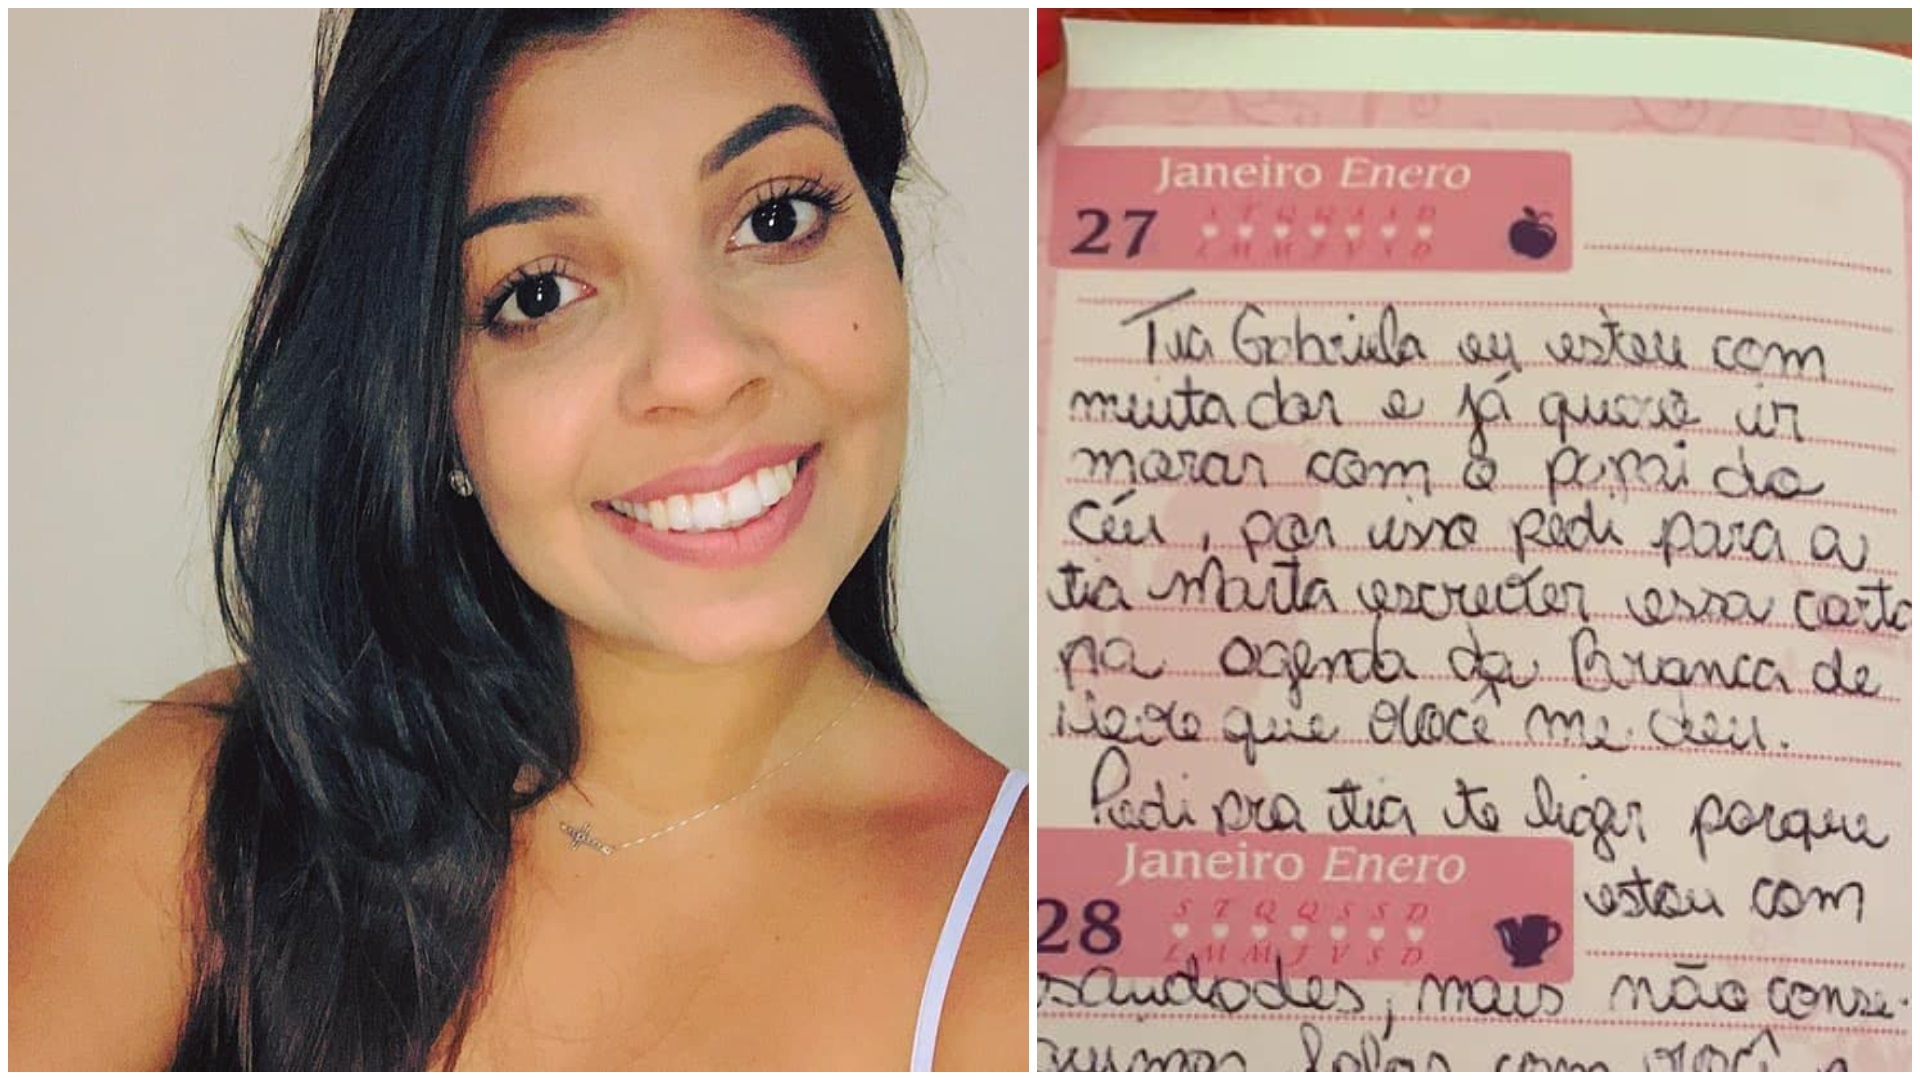 Janeiro Enero
27 S T Q Q S S D
L M M J V S D
Tia Gabriela eu estou com
muita dor e já quero ir
morar com o papai do
Céu, por isso pedi para a
tia Marta escrever essa carta
na agenda da Branca de
Neve que você me deu.
Pedi pra tia te ligar porque
Janeiro Enero
estou com
28 S T Q Q S S D
L M M J V S D
saudades, mais não conse-
guimos falar com você